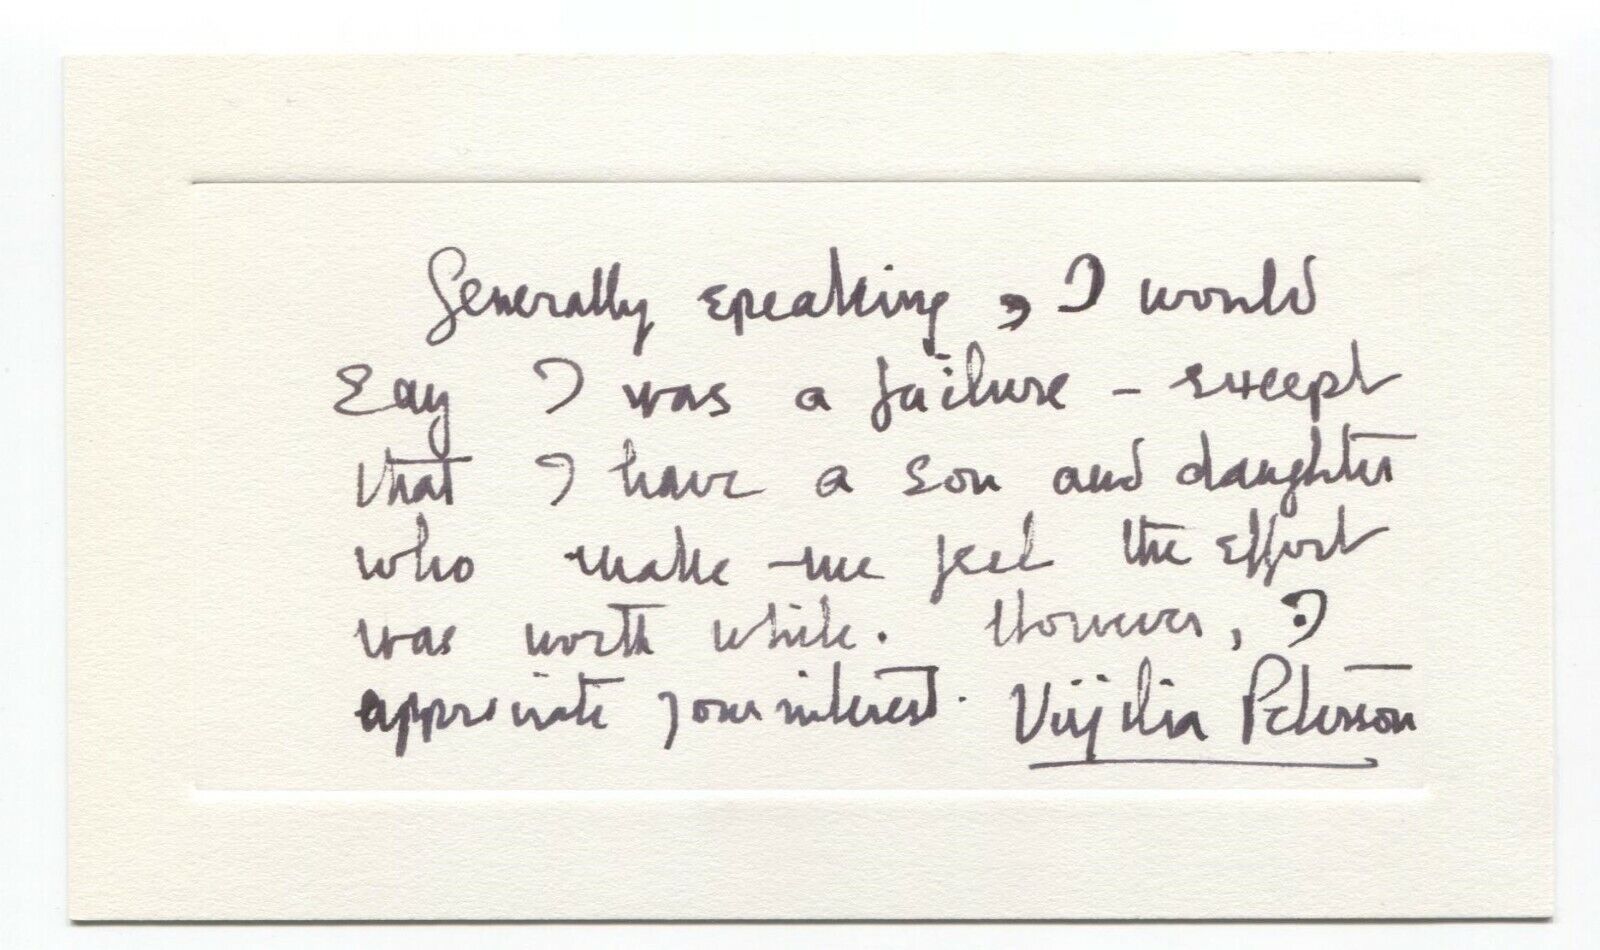 Generally speaking, I would
say I was a failure - except
that I have a son and daughter
who make me feel the effort
was worth while. However, I
appreciate your interest. Virgilia Peterson